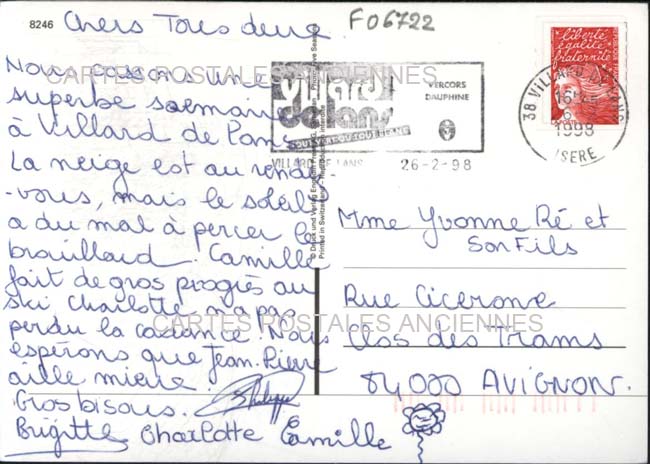 8246
F06722
Chers Tous deux
Nous passons une
superbe semaine
à Villard de Lans
La neige est au rendez
-vous, mais le soleil
a du mal à percer le
brouillard. Camille
fait de gros progrès au
ski Charlotte n'a pas
perdu la cadance. Nous
espérons que Jean-Pierre
aille mieux
Gros bisous. Philippe
Brigitte Charlotte Camille
CARTES POSTALES ANCIENNES
CARTES POSTALES ANCIENNES
Villard
de Lans
VERCORS
DAUPHINE
VILLARD-DE-LANS 26-2-98
liberté
égalité
fraternité
38 VILLARD DE LANS
16H
1998
ISERE
Printed in Switzerland
Mme Yvonne Ré et
Son Fils
Rue Cicerone
Clos des Trams
84000 AVIGNON.